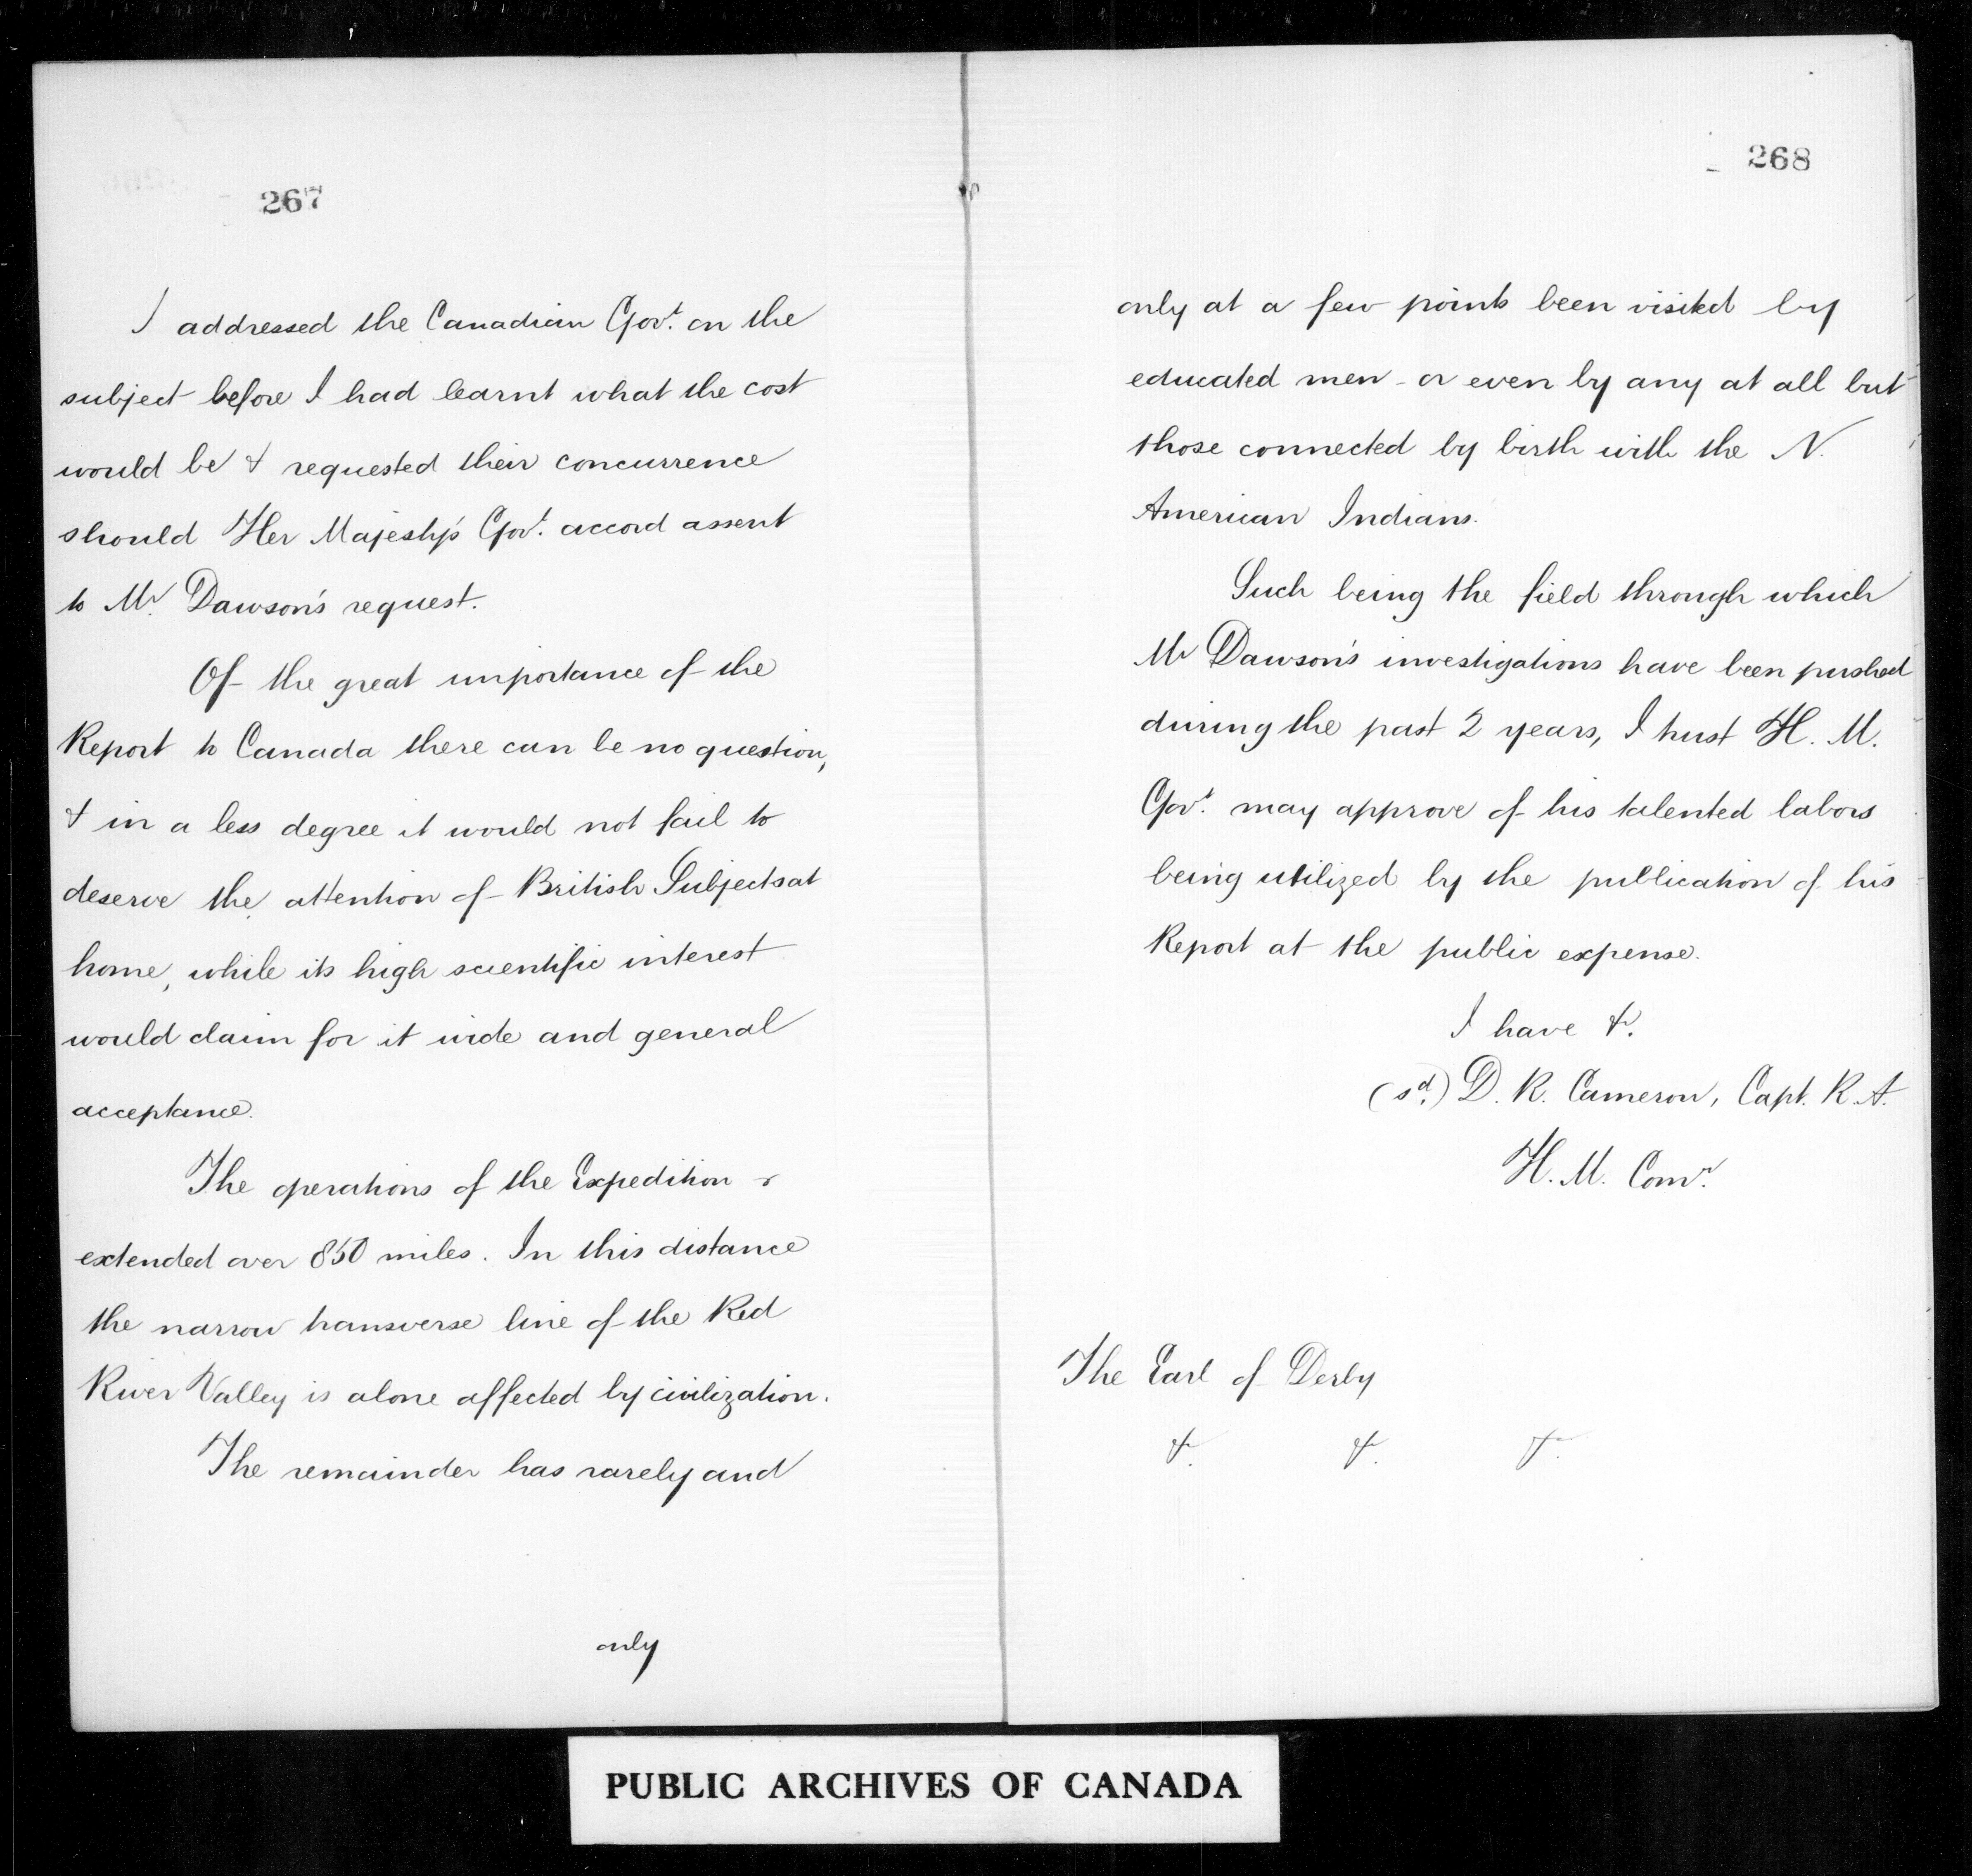 267
I addressed the Canadian Govt. on the
subject before I had learnt what the cost
would be & requested their concurrence
should Her Majesty's Govt. accord assent
to Mr. Dawson's request.
Of the great importance of the
Report to Canada there can be no question,
& in a less degree it would not fail to
deserve the attention of British Subjects at
home, while its high scientific interest
would claim for it wide and general
acceptance.
The operations of the Expedition
extended over 850 miles. In this distance
the narrow transverse line of the Red
River Valley is alone affected by civilization.
The remainder has rarely and
only
268
only at a few points been visited by
educated men - or even by any at all but
those connected by birth with the N.
American Indians.
Such being the field through which
Mr Dawson's investigations have been pushed
during the past 2 years, I trust H. M.
Govt. may approve of his talented labors
being utilized by the publication of his
Report at the public expense.
I have &.
(sd.) D. R. Cameron, Capt. R. A.
H. M. Comr.
The Earl of Derby
&. &. &.
PUBLIC ARCHIVES OF CANADA